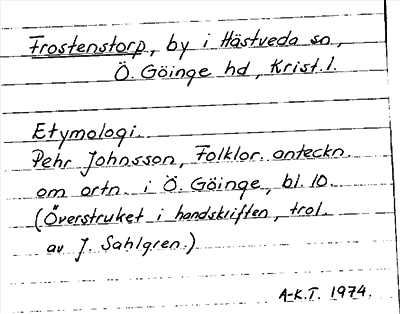 Frostenstorp, by i Hästveda sn,
Ö. Göinge hd, Krist. l.
Etymologi
Pehr Johnsson, Folklor. anteckn.
om ortn. i Ö. Göinge, bl. 10.
(Överstruket i handskriften, trol.
av J. Sahlgren.)
A-K.T. 1974.